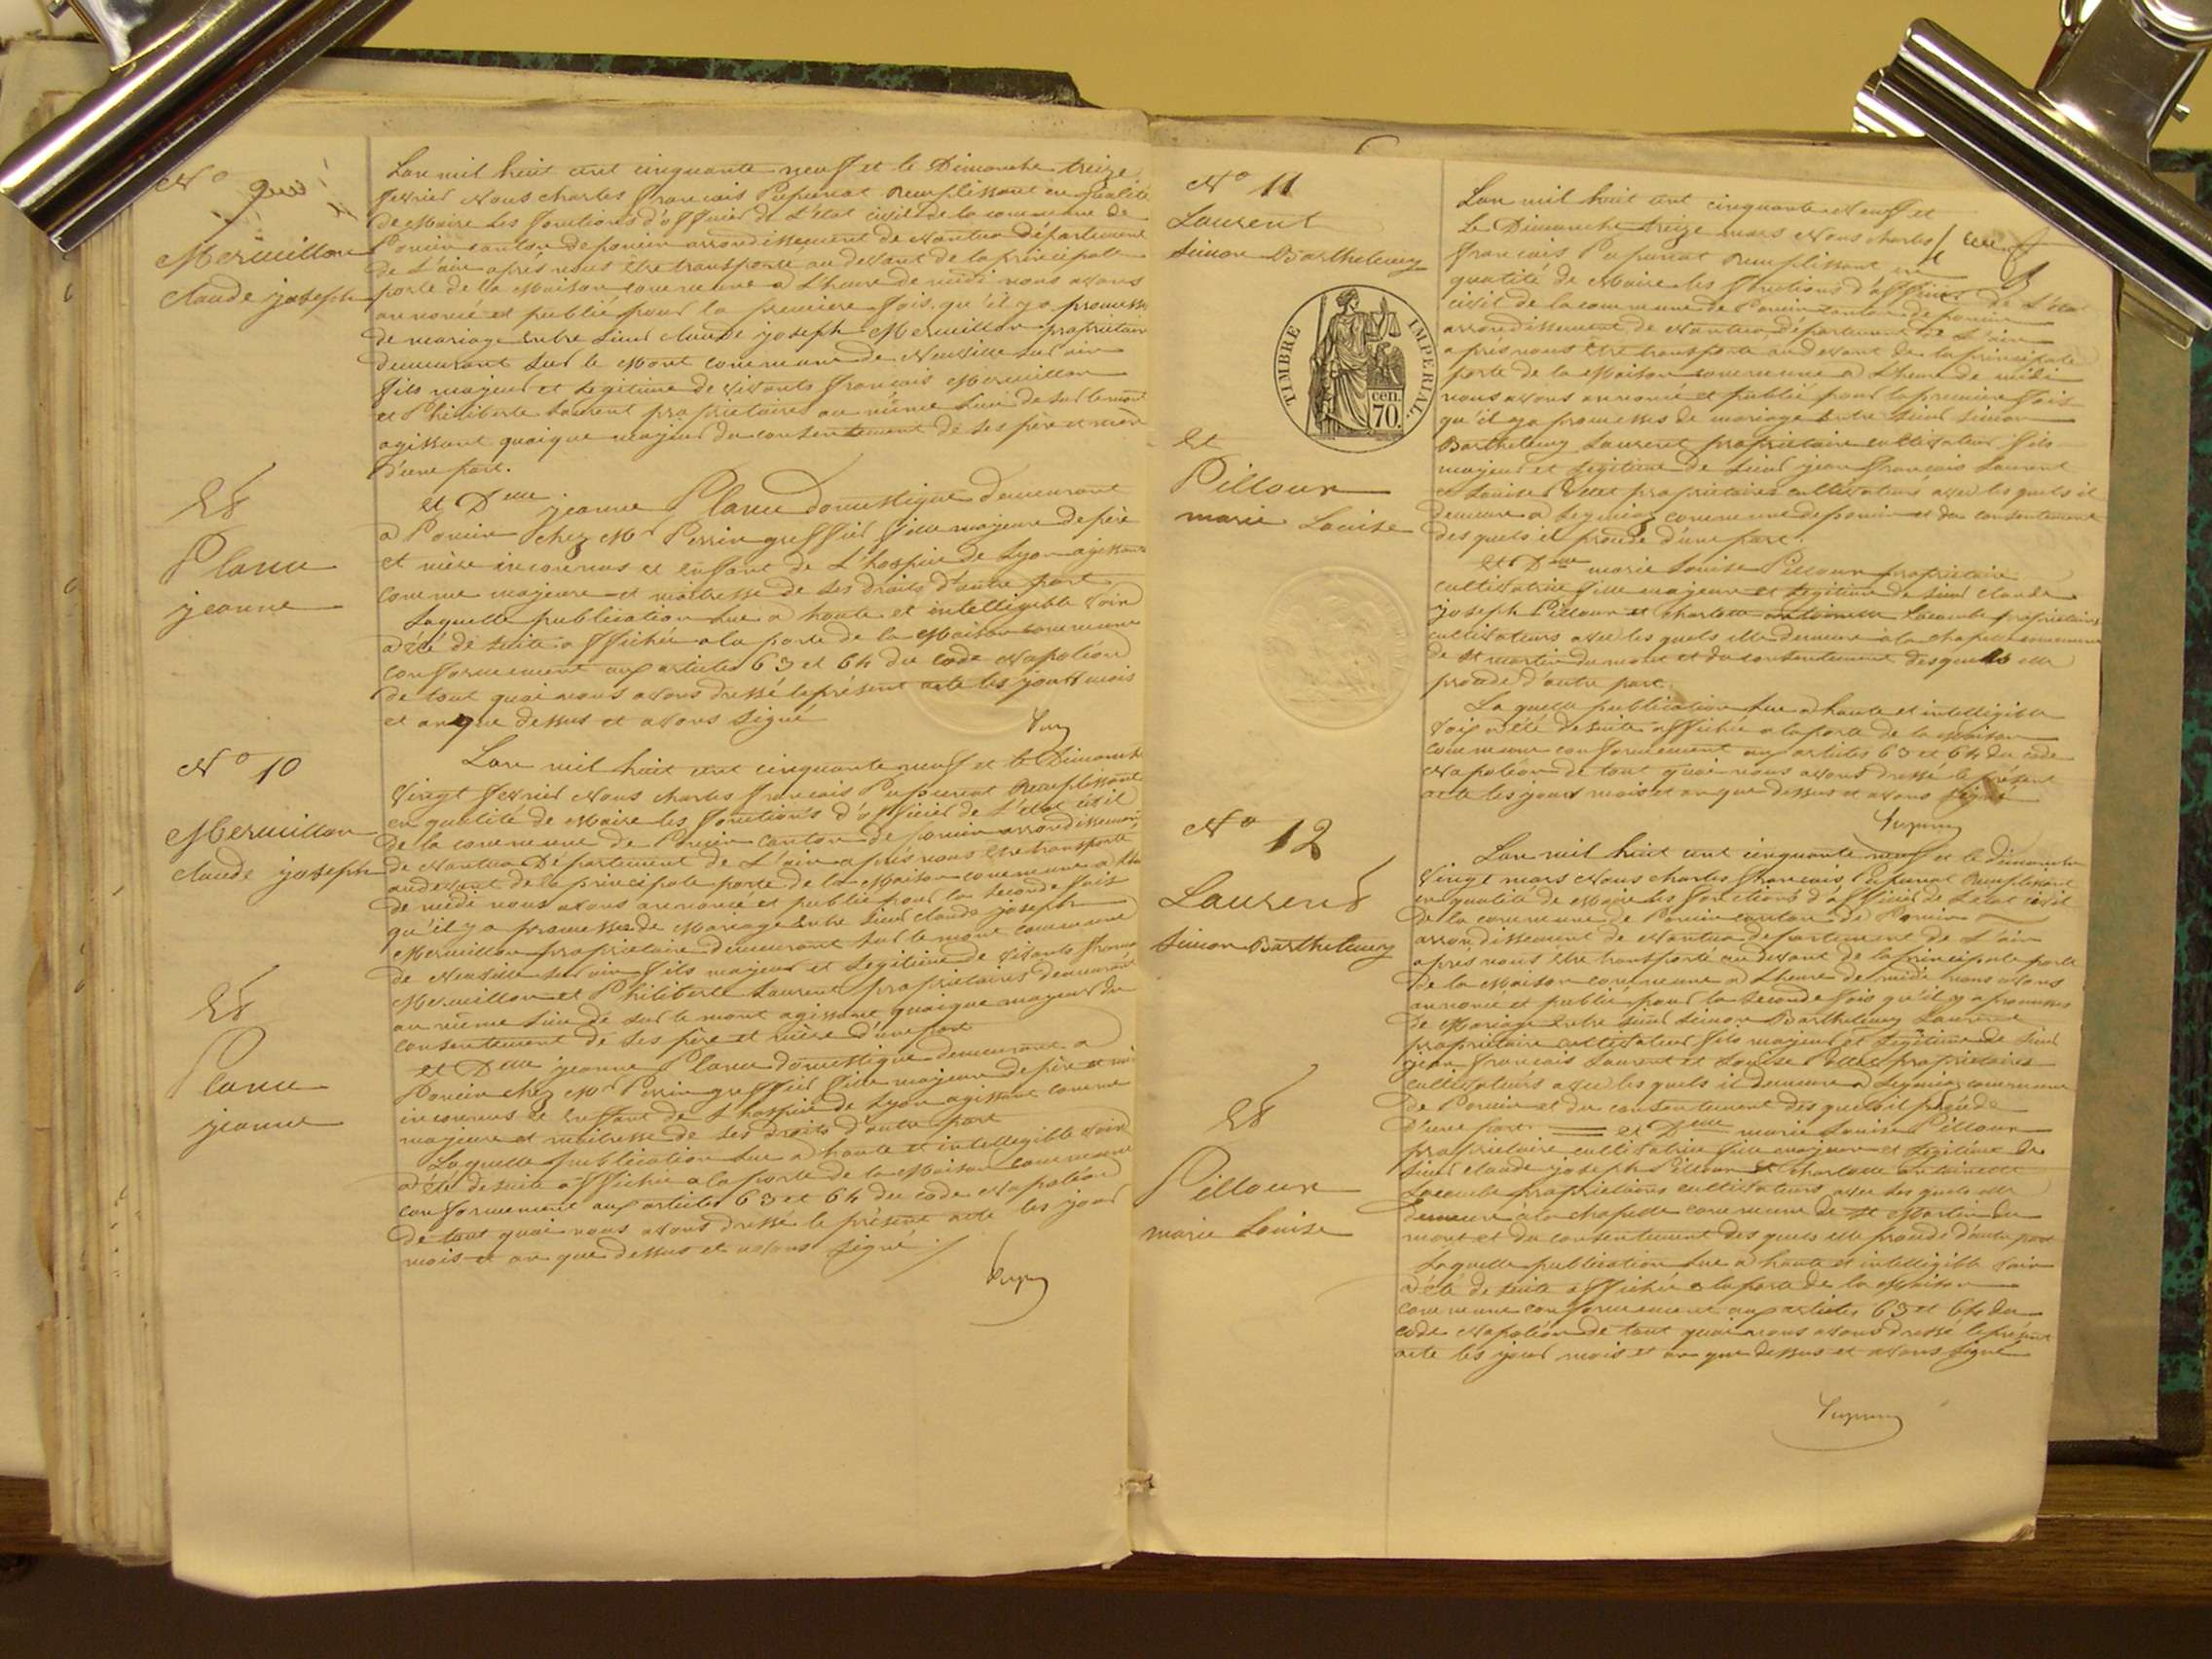 N°
Mermillon
Claude joseph
Et
Planu
jeanne
L'an mil huit cent cinquante neuf et le Dimanche treize
fevrier Nous charles francais Pupunat Remplissant en qualité
de Maire les fonctions d'officier de L'état civil de la commune de
Poncin canton de poncin arrondissement de Nantua département
de L'ain après nous être transporté au devant de la principale
porte de la Maison commune a L'heure de midi nous avons
annoncé et publié pour la premiere fois qu'il y a promesse
de mariage entre sieur claude joseph Mermillon propriétaire
demeurant sur le Mont commune de Neuville sur ain
fils majeur et legitime de vivants français Mermillon
et Philiberte Laurent propriétaires au même lieu de sur lemont
agissant quoique majeur du consentement de ses père et mère
d'une part.
et Dlle jeanne Planu domestique demeurant
a Poncin chez Mr Perrin greffier fille majeure de père
et mère inconnus et enfant de L'hospice de Lyon agissant
comme majeure et maitresse de ses droits d'autre part
Laquelle publication lue a haute et intelligible voix
a été de suite affichée a la porte de la Maison commune
conformement aux articles 63 et 64 du code Napoléon
de tout quoi nous avons dressé le présent acte les jour mois
et an que dessus et avons signé
N° 10
Mermillon
claude joseph
Et
Planu
jeanne
L'an mil huit cent cinquante neuf et le Dimanche
Vingt fevrier Nous charles francais Pupunat Remplissant
en qualité de Maire les fonctions d'officier de L'état civil
de la commune de Poncin canton de poncin arrondissement
de Nantua Département de L'ain après nous être transporté
au devant de la principale porte de la Maison commune a
de midi nous avons annoncé et publié pour la seconde fois
qu'il y a promesse de Mariage entre sieur claude joseph
Mermillon propriétaire demeurant sur le mont commune
de Neuville sur ain fils majeur et legitime de vivants
Mermillon et Philiberte Laurent propriétaires demeurant
au même lieu de sur le mont agissant quoique majeur du
consentement de ses père et mère d'une part
et Dlle jeanne Planu domestique demeurant a
Poncin chez Mr Perrin greffier fille majeure de père et
inconnus et enfant de L'hospice de Lyon agissant comme
majeure et maitresse de ses droits d'autre part
Laquelle publication lue a haute et intelligible voix
a été de suite affichée a la porte de la Maison commune
conformement aux articles 63 et 64 du code Napoléon
de tout quoi nous avons dressé le présent acte les jour
mois et an que dessus et avons signé
N° 11
Laurent
Simon Barthelemy
TIMBRE IMPERIAL.
cen. 70.
Et
Pilloux
marie Louise
L'an mil huit cent cinquante Neuf et
le Dimanche treize mars Nous charles
francais Pupunat Remplissant en
qualité de Maire les fonctions d'officier de L'état
civil de la commune de Poncin canton de poncin
arrondissement de Nantua département de L'ain
après nous être transporté au devant de la principale
porte de la Maison commune a L'heure de midi
nous avons annoncé et publié pour la premiere fois
qu'il y a promesses de mariage entre sieur Simon
Barthelemy Laurent propriétaire cultivateur fils
majeur et legitime de sieur jean francais Laurent
et Louise propriétaires cultivateurs avec les quels il
demeure a commune de poncin et du consentement
des quels il procède d'une part.
et Dlle marie Louise Pilloux propriétaire
cultivatrice fille majeure et legitime de sieur claude
joseph Pilloux et charlotte antoinette Lacombe propriétaires
cultivateurs avec les quels elle demeure a la chapelle commune
de St martin du mont et du consentement des quels elle
procède d'autre part.
La quelle publication lue a haute et intelligible
voix a été de suite affichée a la porte de la Maison
commune conformement aux articles 63 et 64 du code
Napoléon de tout quoi nous avons dressé le présent
acte les jour mois et an que dessus et avons signé
N° 12
Laurent
Simon Barthelemy
Et
Pilloux
marie Louise
L'an mil huit cent cinquante neuf et le dimanche
Vingt mars Nous charles francais Pupunat Remplissant
en qualité de Maire les fonctions d'officier de L'état civil
de la commune de Poncin canton de Poncin
arrondissement de Nantua département de L'ain
après nous être transporté au devant de la principale porte
de la Maison commune a L'heure de midi nous avons
annoncé et publié pour la seconde fois qu'il y a promesses
de Mariage entre sieur Simon Barthelemy Laurent
propriétaire cultivateur fils majeur et legitime de sieur
jean francais Laurent et Louise propriétaires
cultivateurs avec les quels il demeure a commune
de Poncin et du consentement des quels il procède
d'une part. et Dlle marie Louise Pilloux
propriétaire cultivatrice fille majeure et legitime de
sieur claude joseph Pilloux et charlotte antoinette
Lacombe propriétaires cultivateurs avec les quels elle
demeure a la chapelle commune de St Martin du
mont et du consentement des quels elle procède d'autre part
Laquelle publication lue a haute et intelligible voix
a été de suite affichée a la porte de la Maison
commune conformement aux articles 63 et 64 du
code Napoléon de tout quoi nous avons dressé le présent
acte les jour mois et an que dessus et avons signé